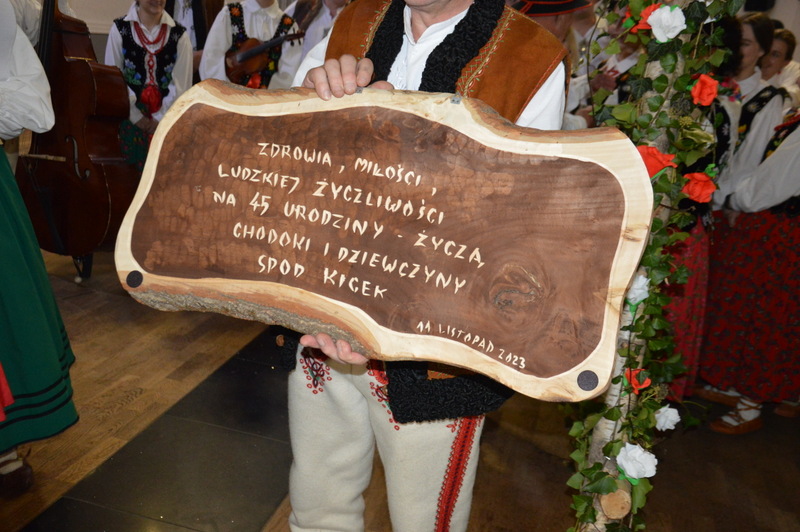 ZDROWIA, MIŁOŚCI,
LUDZKIEJ ŻYCZLIWOŚCI
NA 45 URODZINY - ŻYCZĄ
CHODOKI I DZIEWCZYNY
SPOD KICEK
11 LISTOPAD 2023